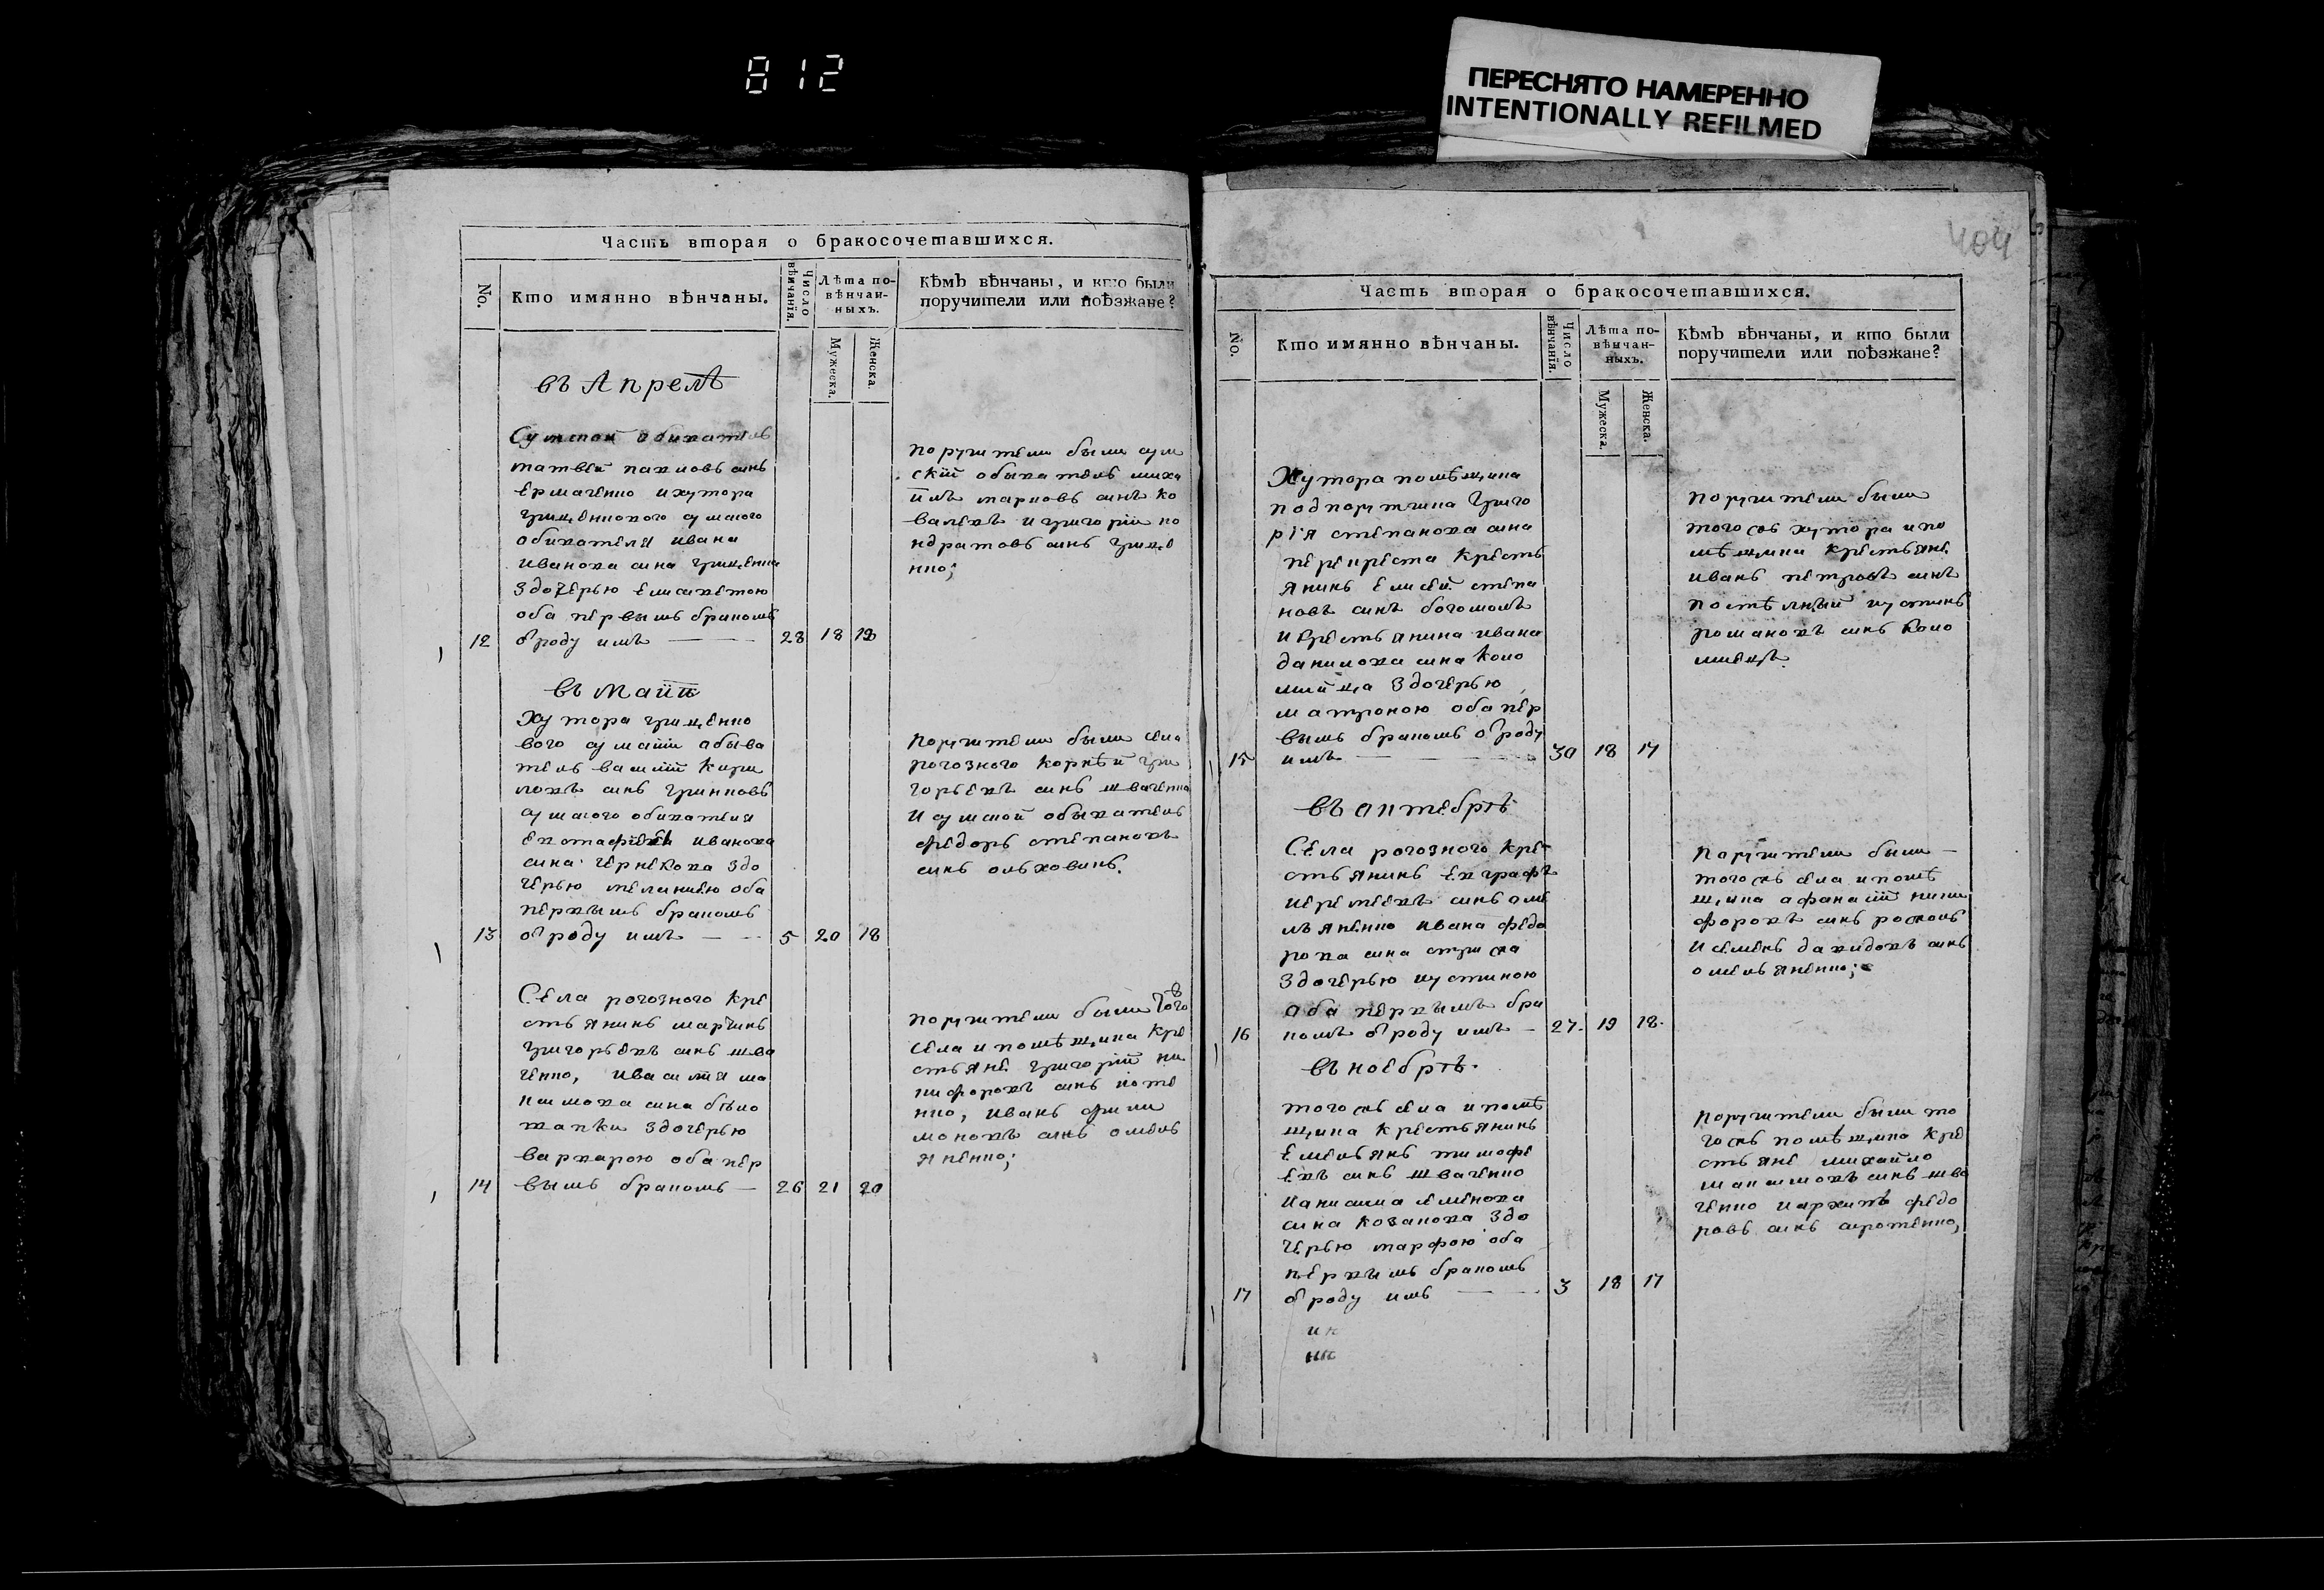 812
ПЕРЕСНЯТО НАМЕРЕННО
INTENTIONALLY REFILMED
Часть вторая о бракосочетавшихся.
No.
Кто имянно вѣнчаны.
Число вѣнчанія.
Лѣта по-
вѣнчан-
ныхъ.
Мужеска.
Женска.
Кѣмъ вѣнчаны, и кто были
поручители или поѣзжане?
въ Апрелѣ
Сумской обиватель
матвей павловъ синъ
Ермаченко ихутора
грищенкового сумского
обивателя ивана
Иванова сина грищенка
Здочерью Елисаветою
оба первымъ бракомъ
12 оброду имъ 28 18 19
поручители были сум
скій обыватель миха
илъ марковъ синъ ко
валевъ и григорій ко
ндратовъ синъ грище
нко;
въ Маіи
Хутора грищенко
вого сумскій обыва
тель василій Кири
ловъ синъ гринковъ
сумского обивателя
Евстафіева Иванова
сина чернекова Здо
черью меланиею оба
первымъ бракомъ
13 оброду имъ 5 20 18
поручители были села
рогозного Корнѣй гри
горьевъ синъ шваченка
И сумской обыватель
федоръ степановъ
синъ ольховикъ.
Села рогозного Кре
стьянинъ мартинъ
Григорьевъ синъ шва
ченко, ивасилія ма
ксимова сина бѣло
шапки Здочерью
варварою оба пер
14 вымъ бракомъ 26 21 20
поручители были того
села ипомѣщика Кре
стьяне Григорій ни
кифоровъ синъ коте
нко, иванъ фили
моновъ синъ омель
яненко;
404
Часть вторая о бракосочетавшихся.
No.
Кто имянно вѣнчаны.
Число вѣнчанія.
Лѣта по-
вѣнчан-
ныхъ.
Мужеска.
Женска.
Кѣмъ вѣнчаны, и кто были
поручители или поѣзжане?
Хутора помѣщика
подпорутчика Григо
рія степанова сина
перекреста Кресть
янинъ Елисей степа
новъ синъ богомолъ
И Крестьянина ивана
данилова сина Коло
мийца Здочерью
матроною оба пер
вымъ бракомъ оброду
15 имъ 30 18 17
поручители были
того жъ хутора ипо
мѣщика Крестьяне
иванъ петровъ синъ
постѣлный иустинъ
романовъ синъ Коло
миецъ.
въ октебрѣ
Села рогозного Кре
стьянинъ Евграфъ
иеремеевъ синъ оме
льяненко ивана федо
рова сина стриска
Здочерью иустиною
оба первымъ бра
16 комъ оброду имъ 27. 19 18.
Поручители были
того жъ села ипомѣ
щика афанасій ники
форовъ синъ
И семенъ давидовъ синъ
омельяненко;
въ ноебрѣ.
того жъ села ипомѣ
щика Крестьянинъ
Емельянъ тимофе
евъ синъ шваченко
Ианисима семенова
сина Козакова Здо
черью марфою оба
первымъ бракомъ
17 оброду имъ 3 18 17
поручители были то
го жъ помѣщика Кре
стьяне михайло
максимовъ синъ шва
ченко иархипъ федо
ровъ синъ сиротенко,